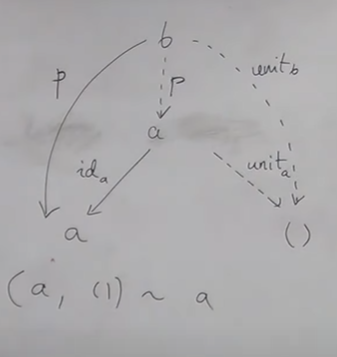 b
p
p
unit_b
a
id_a
unit_a
a
()
(a, ()) ~ a